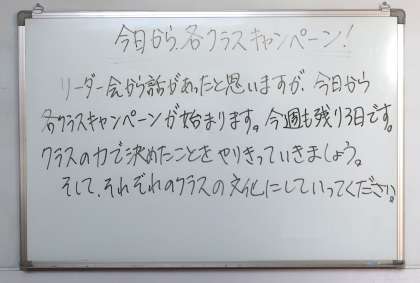 今日から各クラスキャンペーン!
リーダー会から話があったと思いますが、今日から
各クラスキャンペーンが始まります。今週も残り3日です。
クラスの力で決めたことをやりきっていきましょう。
そして、それぞれのクラスの文化にしていってください。